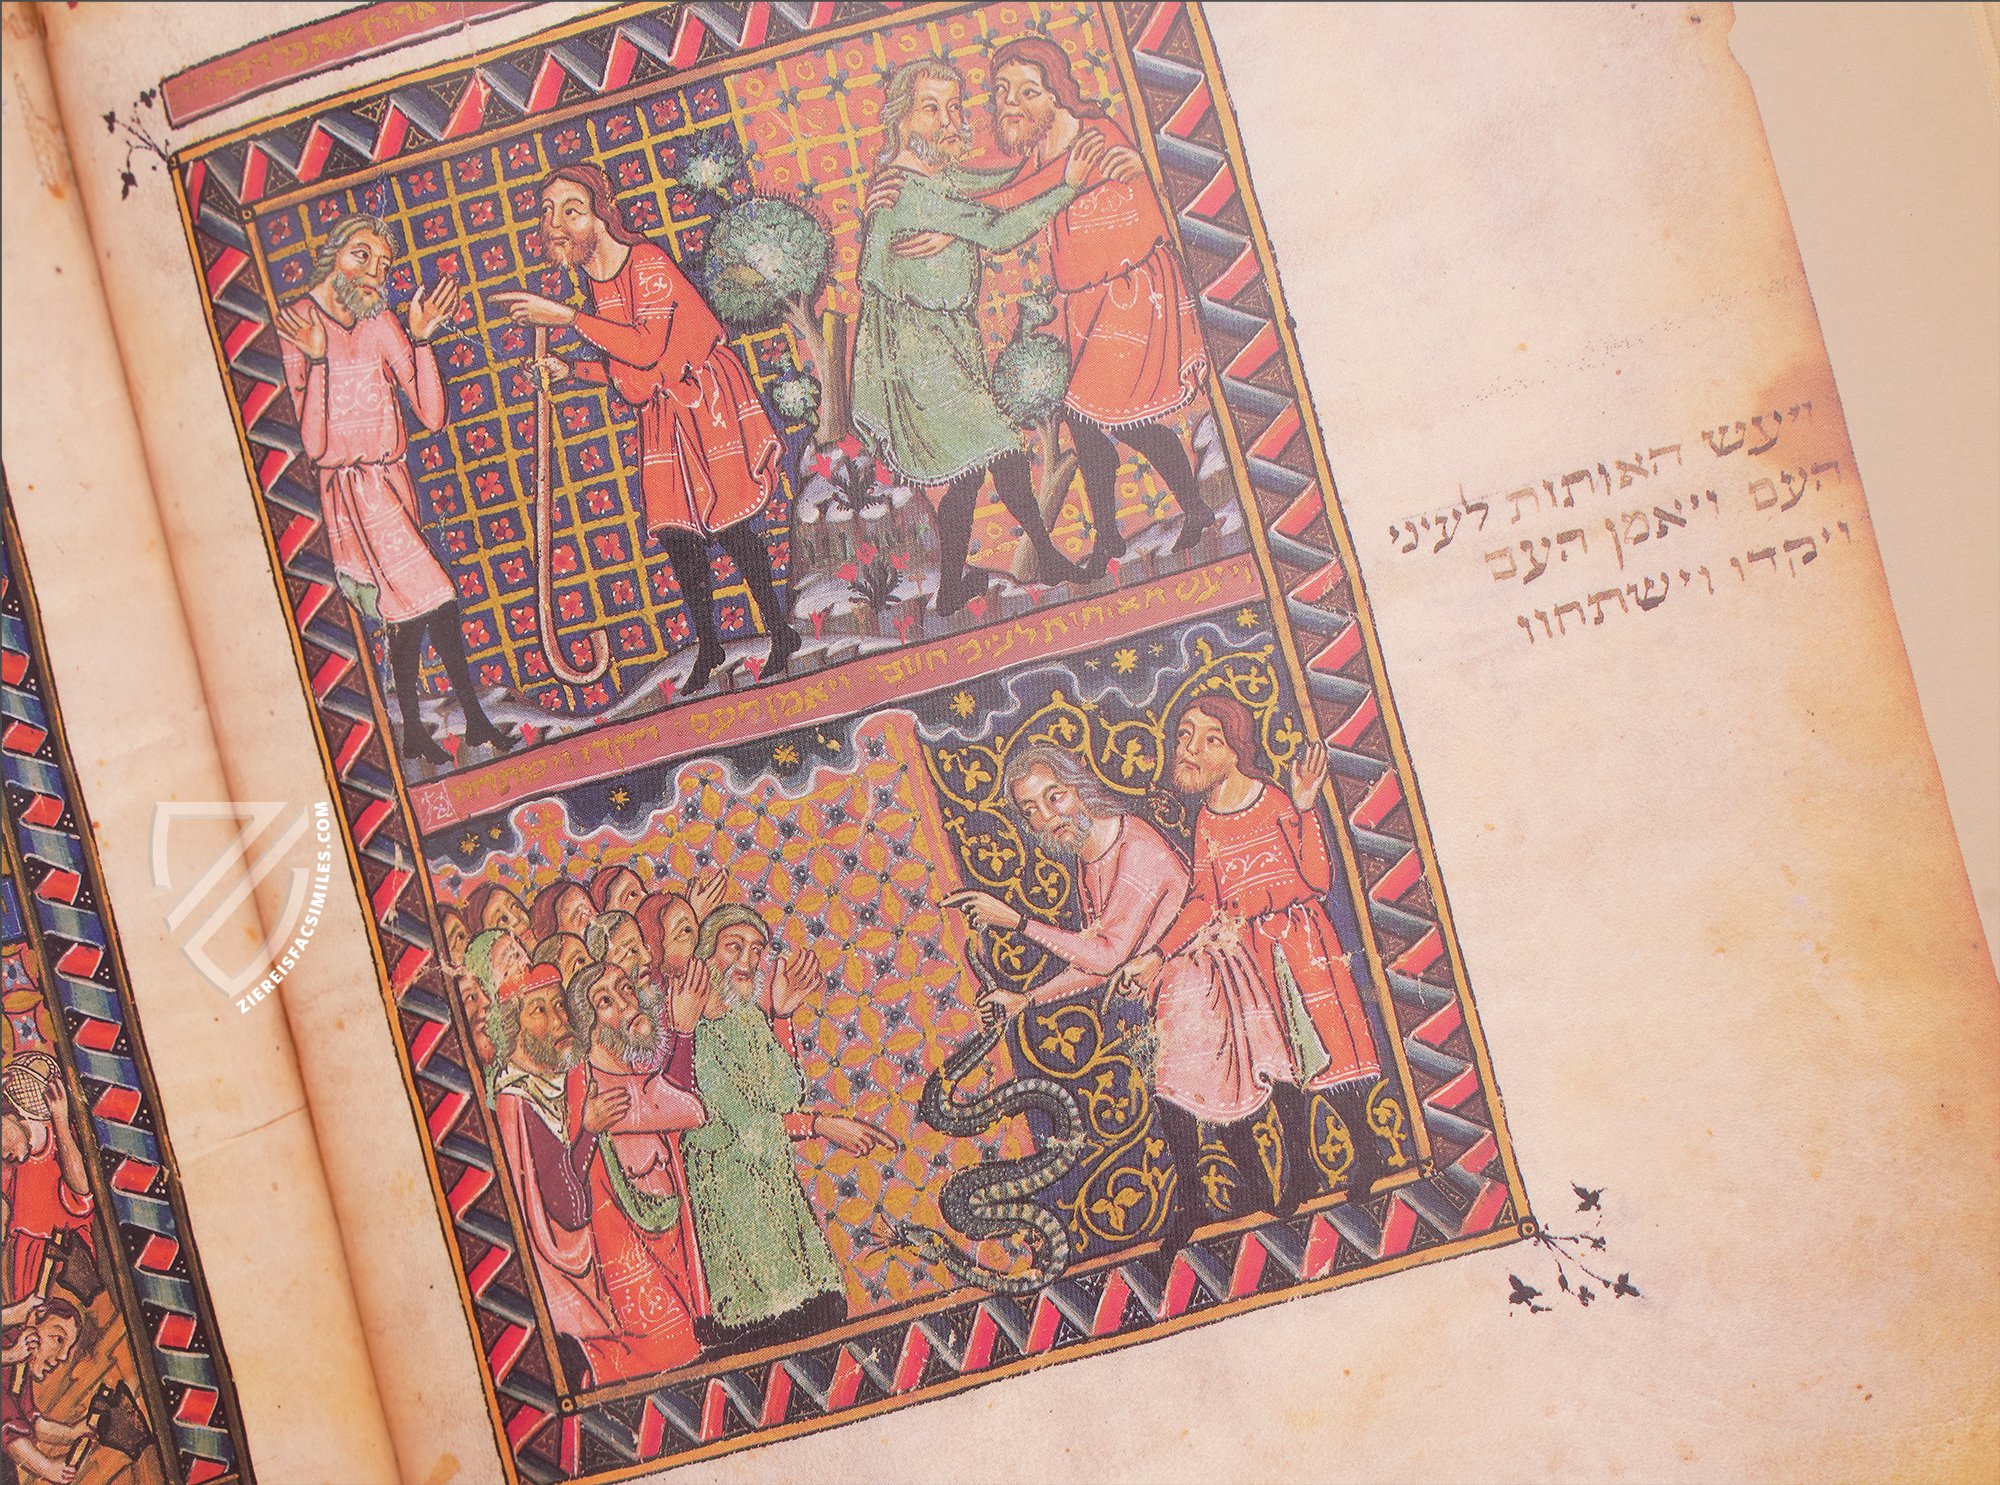 אהרן את כל דברי
ויעש האותות לעיני העם ויאמן העם ויקדו וישתחוו
ויעש האותות לעיני
העם ויאמן העם
ויקדו וישתחוו
ZIEREISFACSIMILES.COM